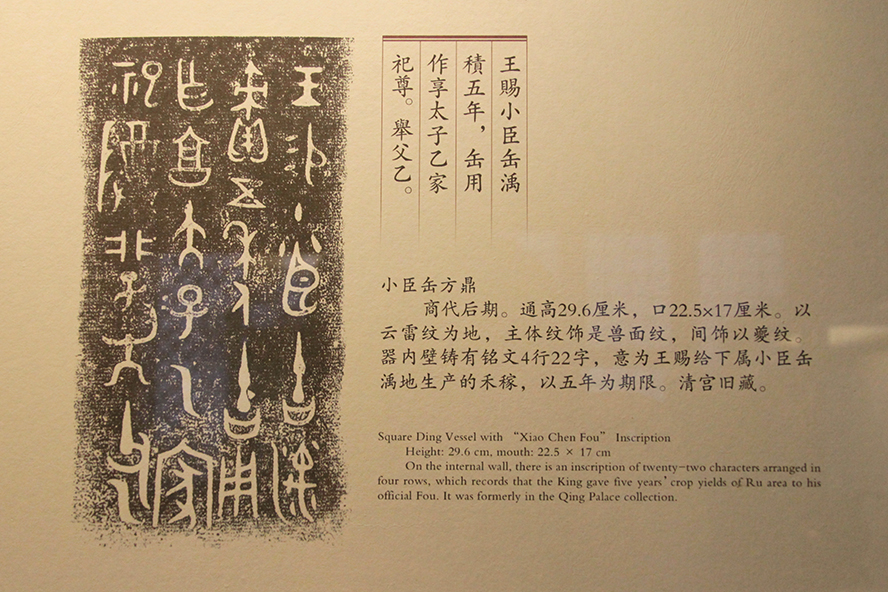 王賜小臣缶湡
積五年，缶用
作享太子乙家
祀尊。舉父乙。
小臣缶方鼎
商代后期。通高29.6厘米，口22.5×17厘米。以
云雷纹为地，主体纹饰是兽面纹，间饰以夔纹。
器内壁铸有铭文4行22字，意为王赐给下属小臣缶
湡地生产的禾稼，以五年为期限。清宫旧藏。
Square Ding Vessel with “Xiao Chen Fou” Inscription
Height: 29.6 cm, mouth: 22.5 × 17 cm
On the internal wall, there is an inscription of twenty-two characters arranged in
four rows, which records that the King gave five years’ crop yields of Ru area to his
official Fou. It was formerly in the Qing Palace collection.